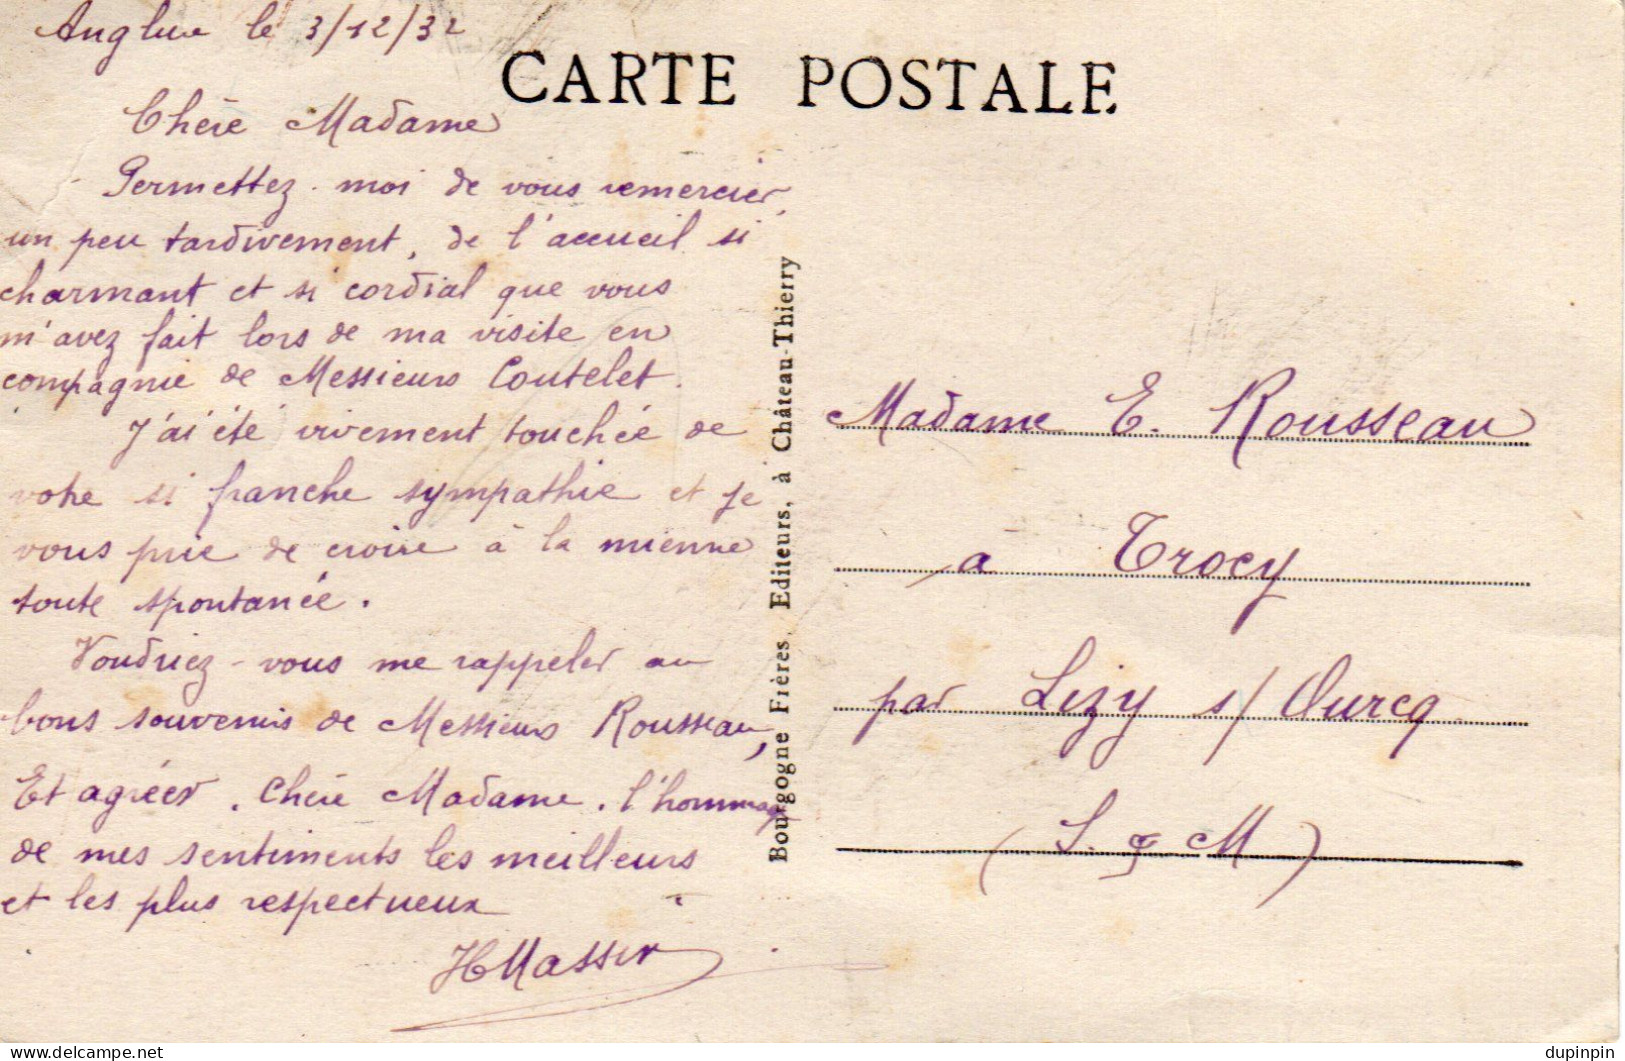 Anglure le 3/12/32
CARTE POSTALE
Chère Madame
Permettez-moi de vous remercier,
un peu tardivement, de l'accueil si
charmant et si cordial que vous
m'avez fait lors de ma visite en
compagnie de Messieurs Coutelet.
J'ai été vivement touchée de
votre si franche sympathie et je
vous prie de croire à la mienne
toute spontanée.
Voudriez-vous me rappeler au
bons souvenirs de Messieurs Rousseau,
Et agréer, Chère Madame, l'hommage
de mes sentiments les meilleurs
et les plus respectueux
Bourgogne Frères, Editeurs, à Château-Thierry
Madame E. Rousseau
à Trocy
par Lizy s/ Ourcq
(S. & M)
www.delcampe.net
dupinpin